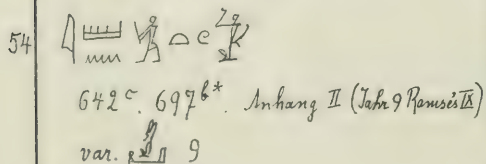 54 𓇋𓏠𓈖
642ᶜ. 697ᵇ*. Anhang II (Jahr 9 Ramsés IX)
var. 9